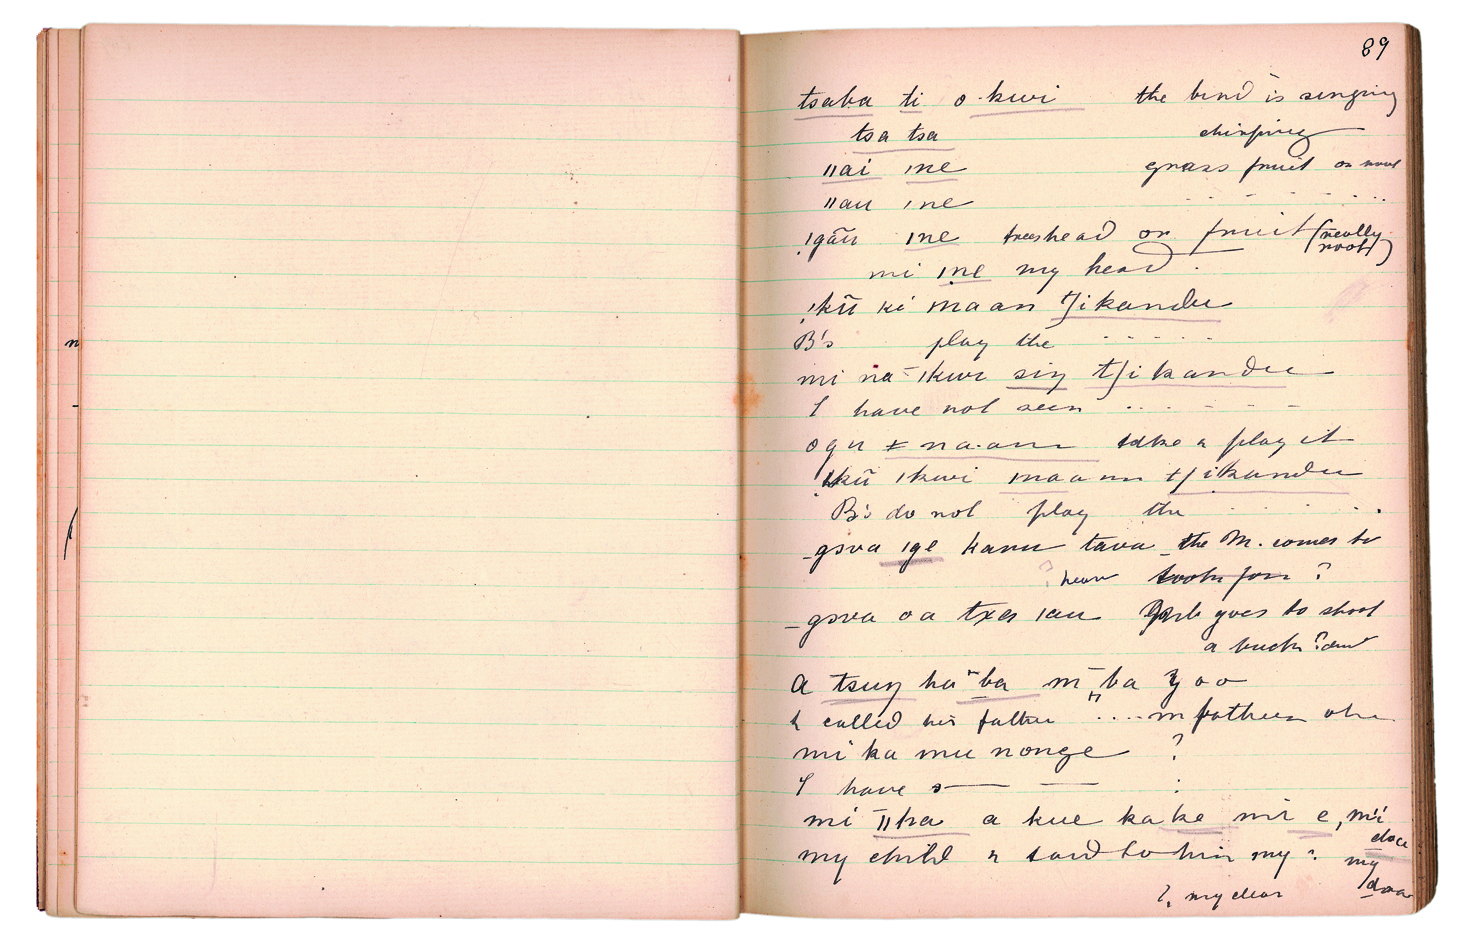 89
tsaba ti o kwi the bird is singing
tsa tsa chirping
ǁai ǀne grass fruit or root
ǁau ǀne
ǃgãu ǀne trees head or fruit (really root)
mi ǀne my head
ǃkũ ki maan tʃikandu
B's play the
mi na ǀkwi siŋ tʃikandu
I have not seen
ogu ǂ na.ann take & play it
ǃkũ ǀkwi maann tʃikandu
B's do not play the
gova ǀge kanu tava the M. comes to
hear took for ?
gova oa txa ǀau goes to shoot
a buck ?
a tsuŋ ha ba m ba
& called his father m father oh
mi ka mu nonge ?
I have
mi ǁha a kue ka ke mi e, mi
my child & said to him my ? my
?, my dear